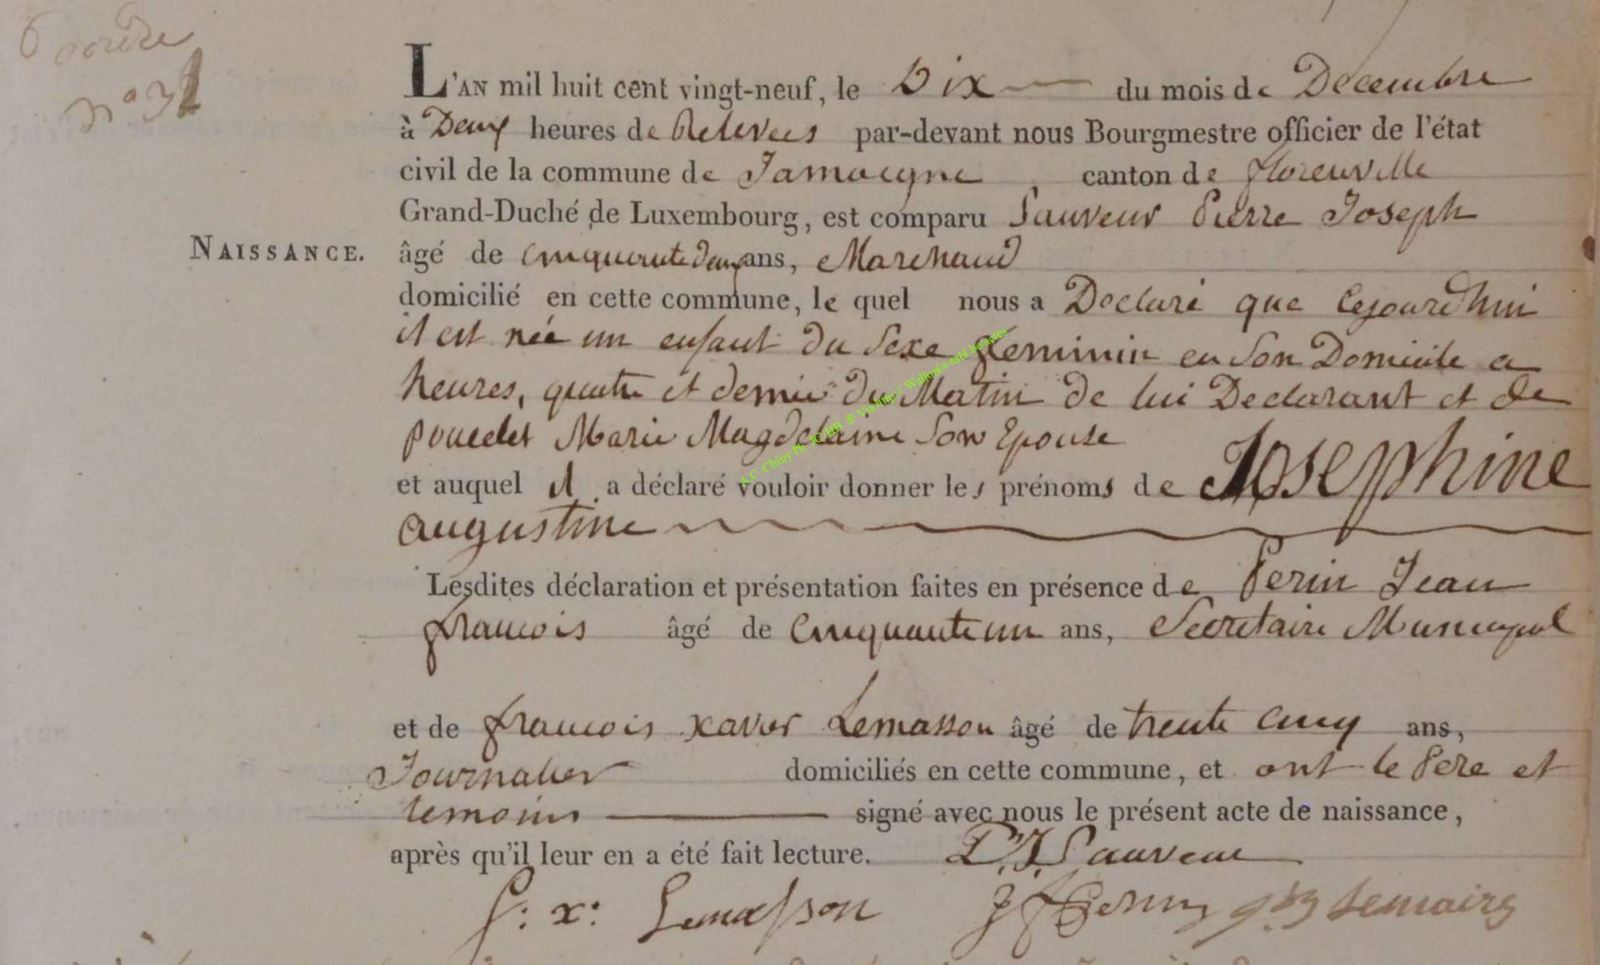 6 ordre
n° 31
L'AN mil huit cent vingt-neuf, le Dix du mois de Decembre
à Deux heures de Relevees par-devant nous Bourgmestre officier de l'état
civil de la commune de Jamoigne canton de florenville
Grand-Duché de Luxembourg, est comparu Sauveur Pierre Joseph
NAISSANCE.
âgé de cinquante deux ans, Marchand
domicilié en cette commune, le quel nous a Declaré que Cejourd'hui
il est née un enfant du Sexe feminin en Son Domicile a
heures, quatre et demie du Matin de lui Declarant et de
poncelet Marie Magdelaine Son Epouse
et auquel il a déclaré vouloir donner les prénoms de Josephine
augustine
Lesdites déclaration et présentation faites en présence de Perin Jean
francois âgé de Cinquante un ans, Secretaire Municipal
et de francois xavier Lemasson âgé de trente cinq ans,
Journalier domiciliés en cette commune, et ont le Pere et
temoins signé avec nous le présent acte de naissance,
après qu'il leur en a été fait lecture. P. J. Sauveur
f: x: Lemasson J f Perin Lemaire